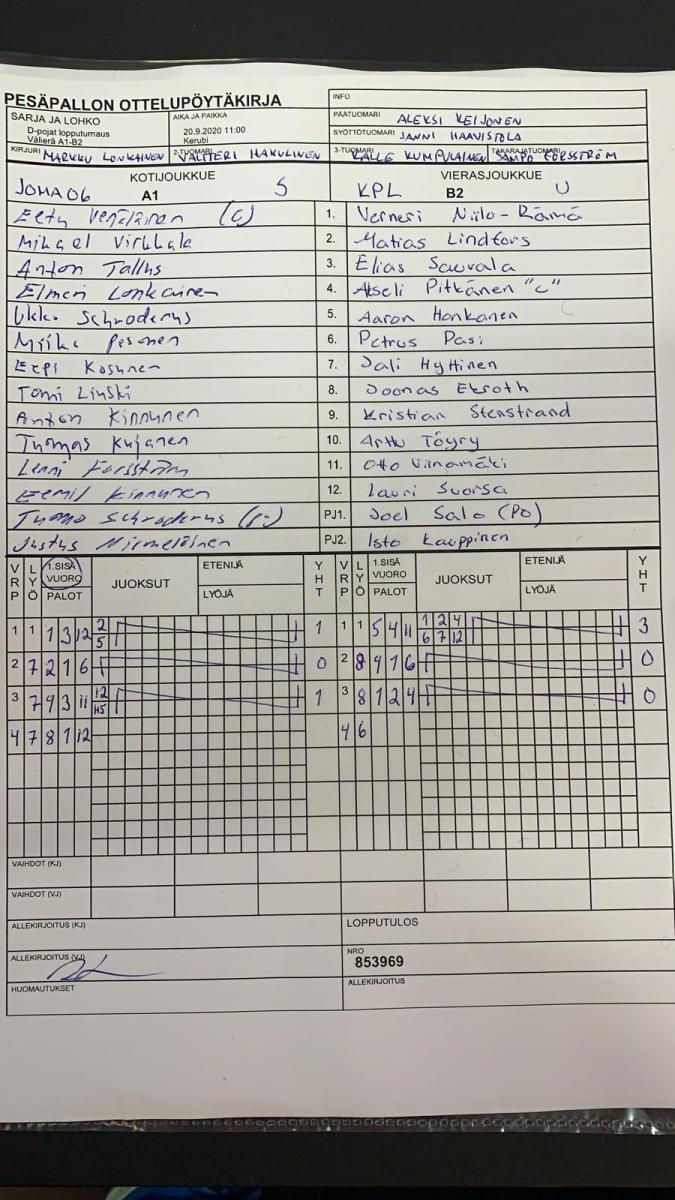 PESÄPALLON OTTELUPÖYTÄKIRJA
INFO
SARJA JA LOHKO
D-pojat lopputurnaus
Välierä A1-B2
AIKA JA PAIKKA
20.9.2020 11:00
Kerubi
PÄÄTUOMARI ALEKSI KEIJONEN
SYÖTTÖTUOMARI JANNI HAAVISTOLA
KIRJURI MARKKU LONKAINEN 2-TUOMARI VALTTERI HAKULINEN 3-TUOMARI KALLE KUMPULAINEN TAKARAJATUOMARI SAMPO FORSSTRÖM
KOTIJOUKKUE VIERASJOUKKUE
JOMA 06 A1 S KPL B2 U
Eetu Venäläinen (C) 1. Verneri Niilo-Rämä
Mikael Virkkala 2. Matias Lindfors
Anton Tallus 3. Elias Sauvala
Elmeri Lonkainen 4. Akseli Pitkänen "C"
Ukko Schroderus 5. Aaron Honkanen
Miika Pesonen 6. Petrus Pasi
Eepi Kosunen 7. Jali Hyttinen
Tomi Linski 8. Joonas Ekroth
Anton Kinnunen 9. Kristian Stenstrand
Tuomas Kujanen 10. Arttu Töyry
Lenni Forsström 11. Otto Viinamäki
Eemil Kinnunen 12. Lauri Suorsa
Tuomo Schroderus PJ1. Joel Salo (PO)
Justus Nirmeloinen PJ2. Isto Kauppinen
VRP LYÖ 1.SISÄ VUORO PALOT JUOKSUT ETENIJÄ LYÖJÄ YHT VRP LYÖ 1.SISÄ VUORO PALOT JUOKSUT ETENIJÄ LYÖJÄ YHT
1 1 1 3 12 2 5 1 1 1 5 4 11 1 2 4 6 7 12 3
2 7 2 1 6 0 2 8 9 1 6 0
3 7 9 3 11 12 H5 1 3 8 1 2 4 0
4 7 8 1 12 4 6
VAIHDOT (KJ)
VAIHDOT (VJ)
ALLEKIRJOITUS (KJ) LOPPUTULOS
ALLEKIRJOITUS (VJ) NRO
853969
HUOMAUTUKSET ALLEKIRJOITUS